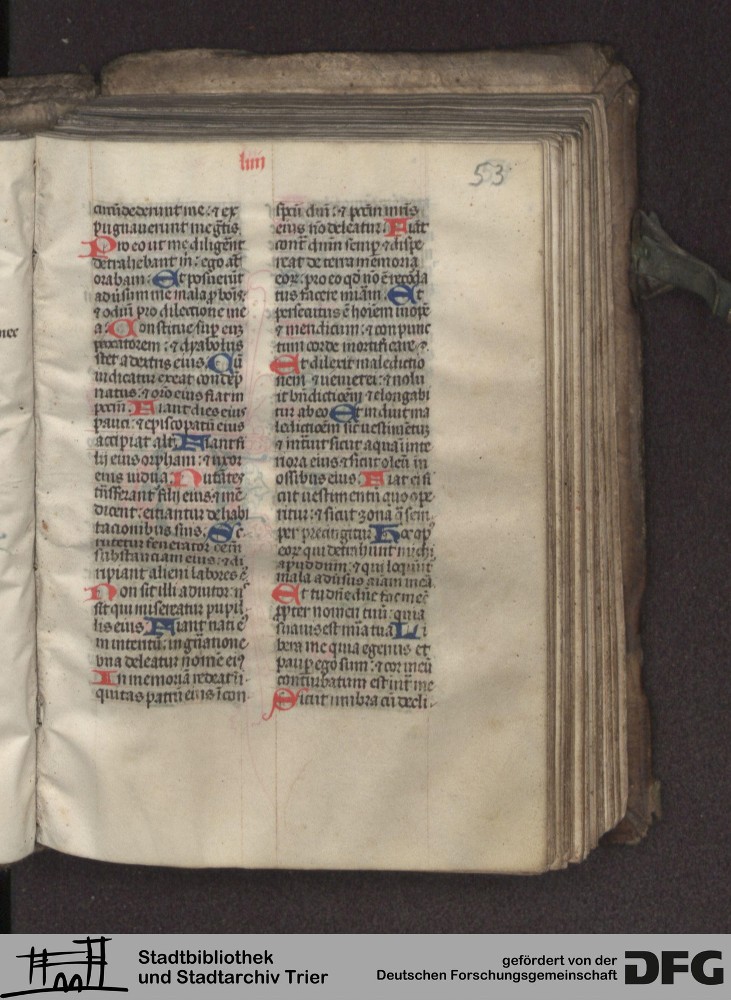 liiii
53
circu̅dederunt me: ⁊ ex
pugnauerunt me g̅tis
Pro eo ut me diligere̅t
detrahebant m̅: ego au̅t
orabam: Et posuer̅t
adu̅sum me mala p̱ bonis
⁊ odiu̅ pro dilectione me
a: Constitue sup̱ eu̅
peccatorem: ⁊ dyabolus
stet a dextris eius: Cu̅
iudicatur exeat conde̅p
natus: ⁊ or̅o eius fiat in
pecc̅m. Fiant dies eius
pauci: ⁊ episcopatu̅ eius
accipiat alt̅. Fiant fi
lij eius orphani: ⁊ uxor
eius uidua. Nuta̅tes
tn̅sferant̅ filij eius ⁊ me̅
dicent: eiciantur de habi
tacionibus suis. Sc
rutetur fenerator oem̅
substanciam eius: ⁊ di
ripiant alieni labores e̅
Non sit illi adiutor: n̅
sit qui misereatur pupil
lis eius. Fiant nati e̅
in interitu̅: in gn̅atione
vna deleatur nome̅ ei⁹
In memoria̅ redeat i̅
quitas patru̅ eius i̅ con
spc̅u dn̅i: ⁊ pecc̅m mr̅is
eius no̅ deleatur. Fiat
cont̅ dn̅m semp̱ ⁊ dispe
reat de terra memoria
eor̅: pro eo qd̅ no̅ e̅ recorda
tus facere mi̅am. Et
persecutus e̅ ho̅iem inope̅
⁊ mendicum: ⁊ conpunc
tum corde mortificare
Et dilexit maledictio
nem ⁊ ueniet ei: ⁊ nolu
it bn̅dictioe̅m ⁊ elongabi
tur ab eo. Et induit ma
ledictioe̅m sic̅ uestimetu̅
⁊ int̅uit sicut aqua i̅ inte
riora eius ⁊ sicut oleu̅ in
ossibus eius. Fiat ei si
cut uestimentu̅ quo ope
ritur: ⁊ sicut zona q̅ sem
per precingitur. Hoc op⁹
eor̅ qui detrahunt michi
apud dn̅m: ⁊ qui loqu̅nt̅
mala adu̅sus a̅iam mea̅
Et tu dn̅e dn̅e fac mec̅
ꝓpter nomen tuu̅: quia
suauis est mi̅a tua. Li
bera me quia egenus et
paup̱ ego sum: ⁊ cor meu̅
conturbatum est int̅ me
Sicut umbra cu̅ decli
Stadtbibliothek
und Stadtarchiv Trier
gefördert von der
Deutschen Forschungsgemeinschaft
DFG